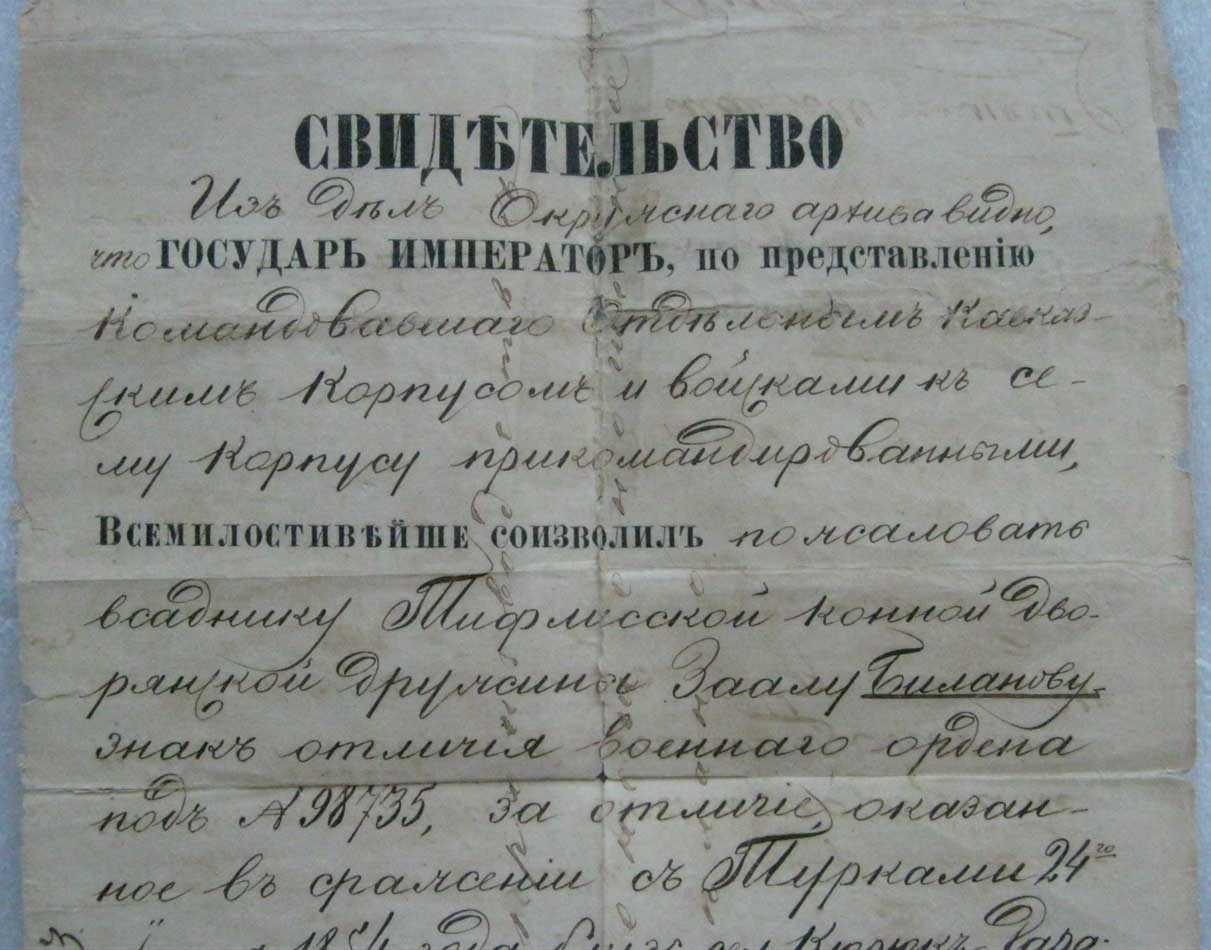 СВИДѢТЕЛЬСТВО
Изъ дѣлъ Окружнаго архива видно,
что ГОСУДАРЬ ИМПЕРАТОРЪ, по представленію
Командовавшаго Отдѣльнымъ Кавказ-
скимъ Корпусомъ и войсками къ се-
му Корпусу прикомандированными,
Всемилостивѣйше соизволилъ пожаловать
всаднику Тифлисской конной дво-
рянской дружины Заалу Биланову
знакъ отличія военнаго ордена
подъ № 98735, за отличіе, оказан-
ное въ сраженіи съ Турками 24го
1854 года близъ сел. Кюрюкъ-Дара